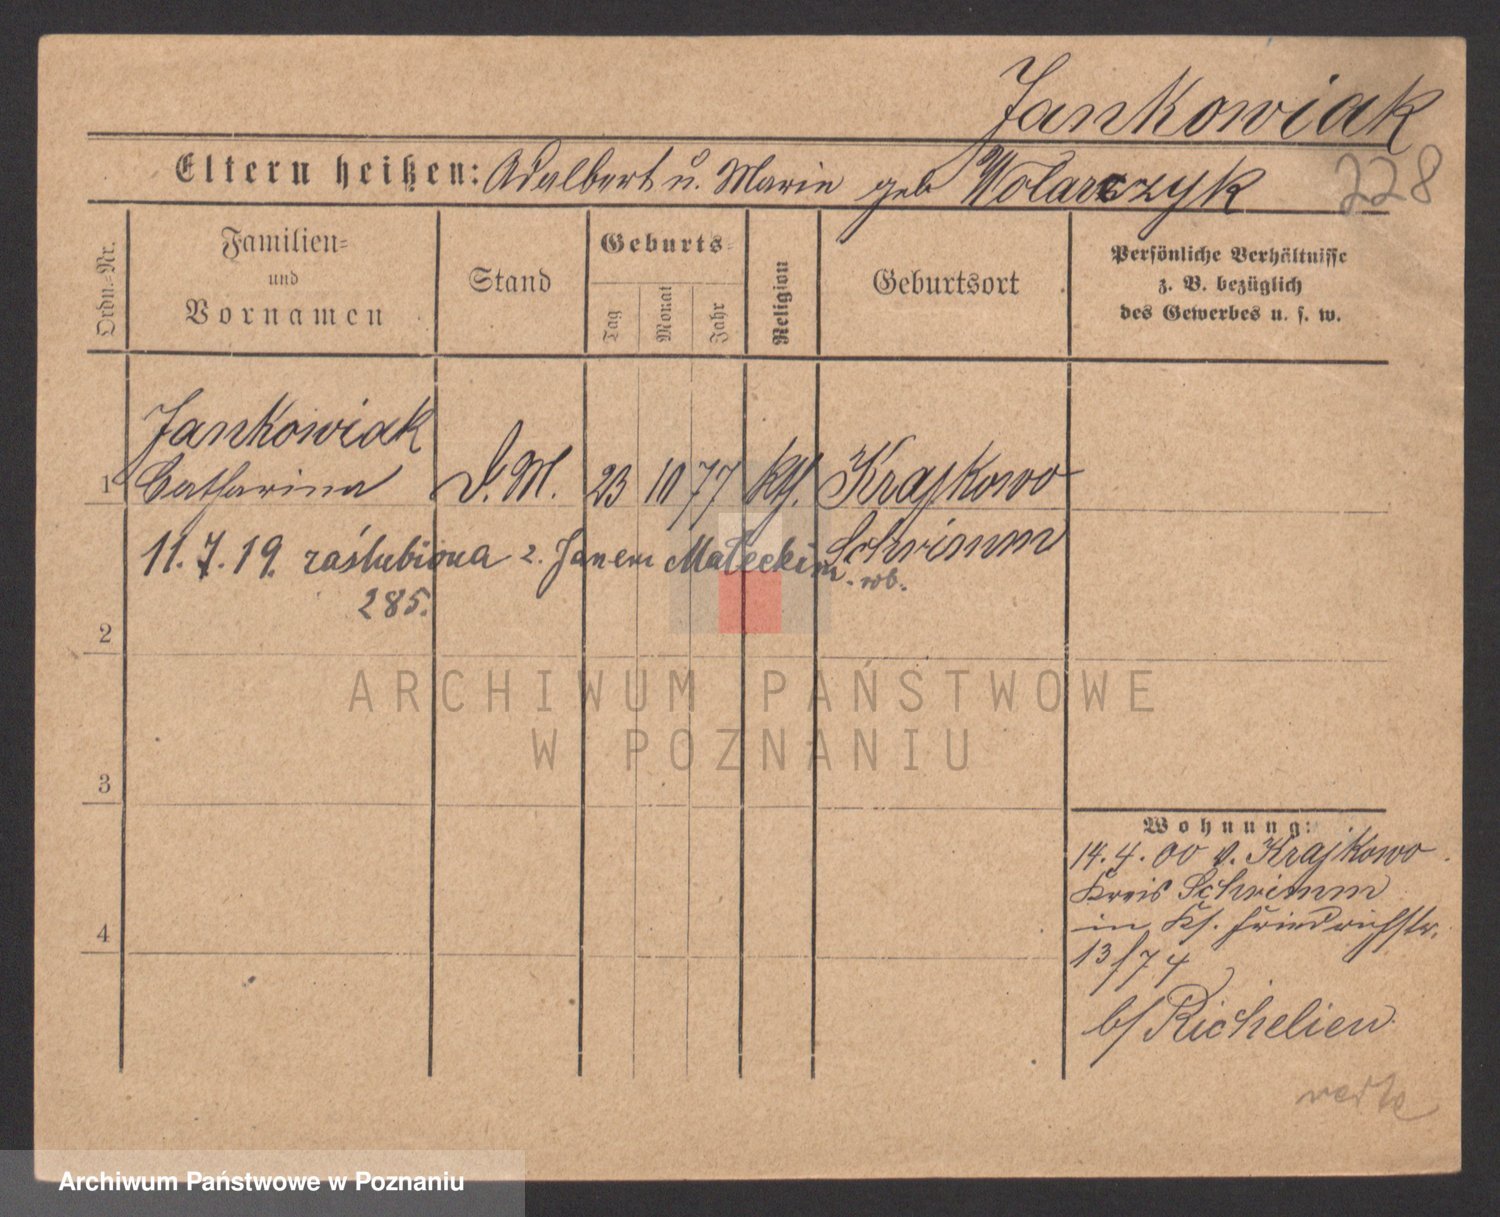 Jankowiak
Eltern heißen: Adalbert u. Marie geb Wolarczyk
228
Ordn.=Nr.
Familien=
und
Vornamen
Stand
Geburts=
Tag
Monat
Jahr
Religion
Geburtsort
Persönliche Verhältnisse
z. B. bezüglich
des Gewerbes u. s. w.
Jankowiak
1 Catharina D. M. 23 10 77 kth. Krajkowo
Schrimm
11.7.19. zaślubiona z. Janem Małeckim. rob.
285.
2
ARCHIWUM PAŃSTWOWE
W POZNANIU
3
Wohnung:
14.4.00 v. Krajkowo
Kreis Schrimm
4
in Friedrichstr.
13/74
b/ Richelieu
verte
Archiwum Państwowe w Poznaniu